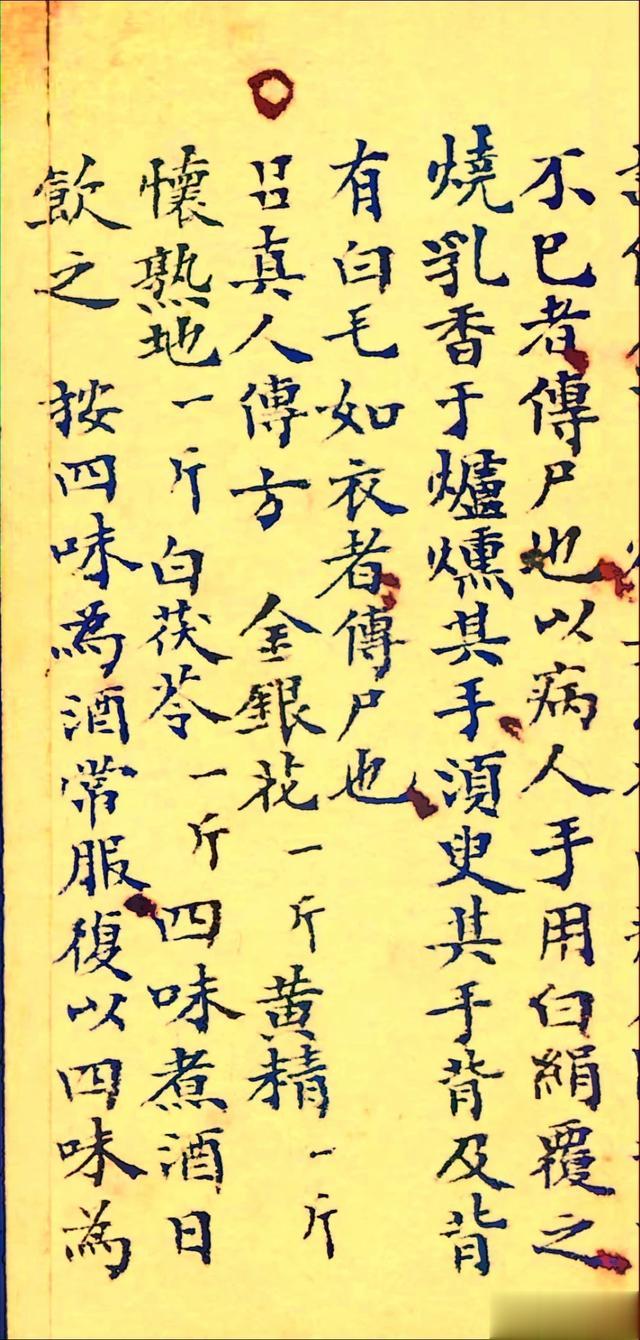 不已者傳尸也以病人手用白絹覆之
燒乳香于爐燻其手須臾其手背及背
有白毛如衣者傳尸也
吕真人傳方 金銀花一斤黄精一斤
懷熟地一斤白茯苓一斤四味煮酒日
飲之 按四味為酒常服復以四味為